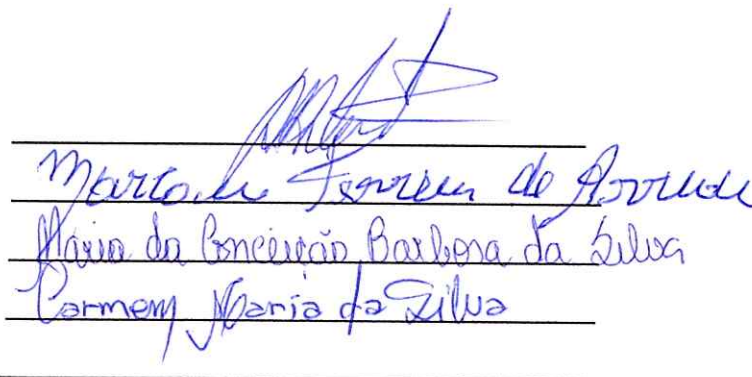 Ferreira de Arruda
Maria da Conceição Barbosa da Silva
Carmem Maria da Silva